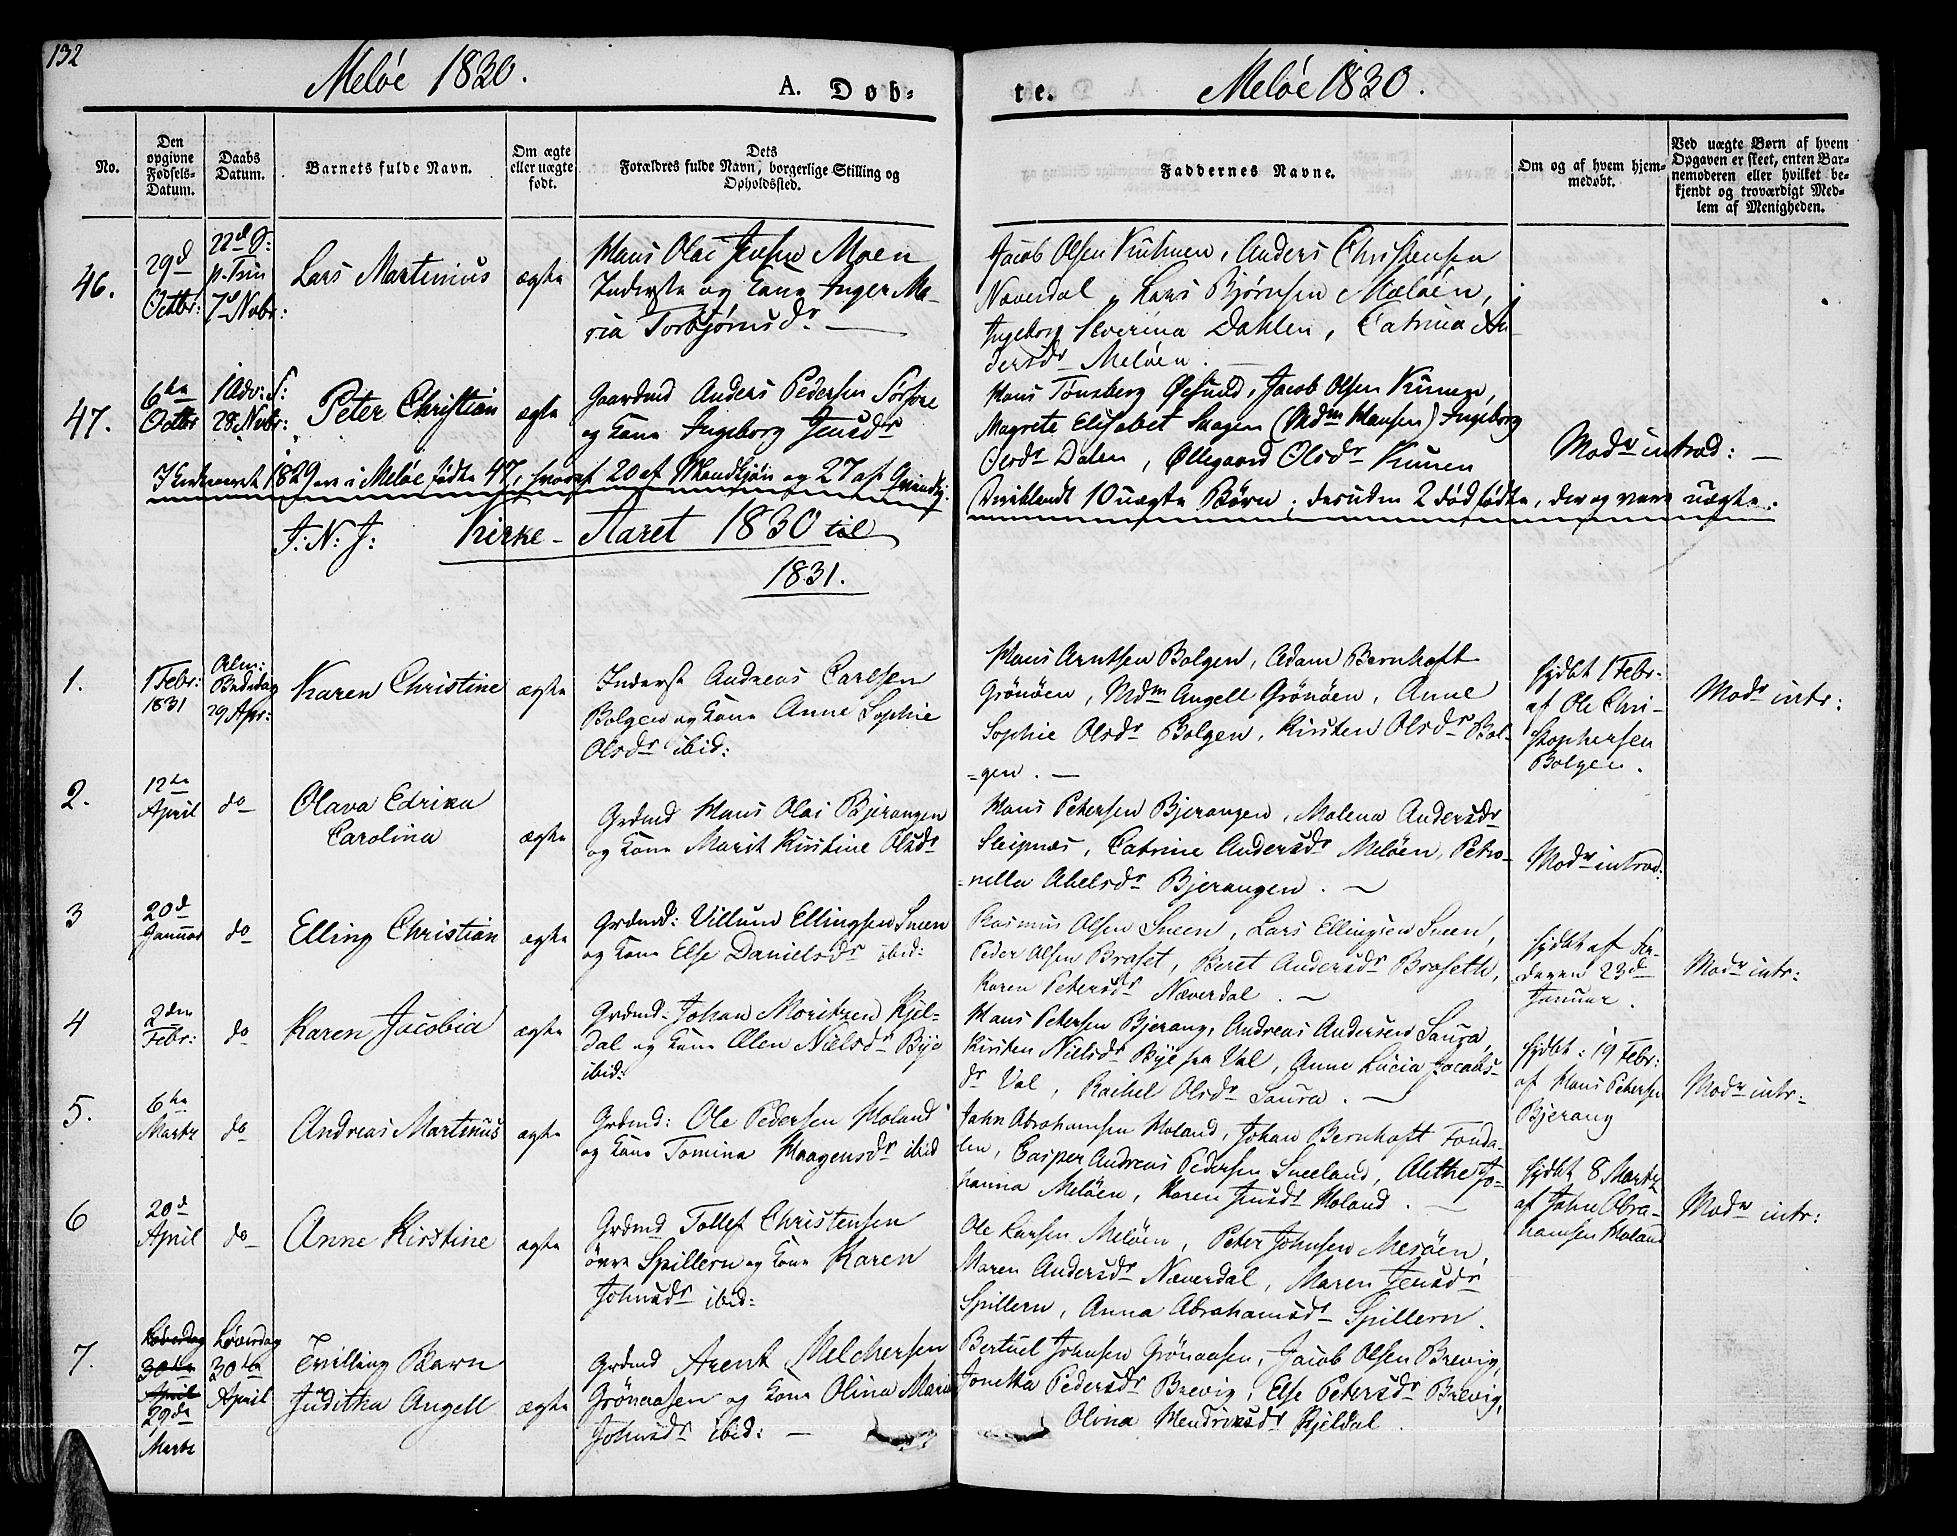 132
Meløe 1830.
A. Døb-
te.
Meløe 1830.
No.
Den
opgivne
Fødsels-
Datum.
Daabs
Datum.
Barnets fulde Navn.
Om ægte
eller uægte
født.
Dets
Forældres fulde Navn, borgerlige Stilling og
Opholdssted.
Faddernes Navne.
Om og af hvem hjem-
medøbt.
Ved uægte Børn af hvem
Opgaven er skeet, enten Bar-
nemoderen eller hvilket be-
kjendt og troværdigt Med-
lem af Menigheden.
46.
29d
Octbr:
22d S:
p. Trin
7d Nvbr:
Lars Martinius
ægte
Hans Olai Jensen Moen
Inderste og Kone Inger Ma-
ria Torbjørnsdr
Jacob Olsen Kunnen, Anders Christensen
Næverdal, Lars Bjørnsen Meløen,
Ingeborg Severina Dahlen, Catrina An
dersdr Meløen.
47.
6te
Octbr
1 Adv: S:
28 Nvbr:
Peter Christian
ægte
Gaardmd Anders Pedersen Sørfore
og Kone Ingeborg Jensdr
Hans Tønsberg Øesund, Jacob Olsen Kunen,
Magrete Elisabet Skagen (Mdm Hansen) Ingeborg
Olsdr Dalen, Øllegaard Olsdr Kunen
Modr introd:
I Kirkeaaret 1829 ere i Meløe fødte 47, hvoraf 20 af Mandkjøn og 27 af Qvindkj:
Deriblandt 10 uægte Børn; desuden 2 dødfødte, der og vare uægte.
J: N: J: Kirke-Aaret 1830 til
1831.
1.
1 Febr:
1831
Alm:
Bededag
29 Apr:
Karen Christine
ægte
Inderst Andreas Carlsen
Bolgen og Kone Anne Sophie
Olsdr ibid:
Hans Arntsen Bolgen, Adam Bernhoft
Grönöen, Mdm Angell Grönöen, Anne
Sophie Olsdr Bolgen, Kirsten Olsdr Bol-
=gen.
hjdbt 1 Febr:
af Ole Chri-
stophersen
Bolgen.
Modr intr:
2.
12te
April
do
Olava Edrika
Carolina
ægte
Grdmd Hans Olai Bjerangen
og Kone Marit Kirstine Olsdr
Hans Petersen Bjerangen, Malena Andersdr
Sleipnæs, Catrine Andersdr Meløen, Petro-
=nella Abelsdr Bjerangen.
Modr introd:
3
20d
Januar
do
Elling Christian
ægte
Grdmd: Villum Ellingsen Sneen
og Kone Else Danielsdr ibid:
Rasmus Olsen Sneen, Lars Ellingsen Sneen,
Peder Olsen Braset, Beret Andersdr Braseth,
Karen Petersdr Næverdal.
hjdbt af Fa-
deren 23d
Januar.
Modr intr:
4
2den
Febr:
do
Karen Jacobia
ægte
Grdmd. Johan Moritzen Kjel-
dal og Kone Elen Nielsdr Bye
ibid:
Hans Petersen Bjerang, Andreas Andersen Saura,
Kirsten Nielsdr Bye fra Val, Anne Lucia Jacobs-
dr Val, Rachel Olsdr Saura.
hjdbt: 19 Febr:
af Hans Petersen
Bjerang
Modr intr:
5.
6te
Martz
do
Andreas Martinus
ægte
Grdmd: Ole Pedersen Holand
og Kone Tomina Haagensdr ibid
Jahn Abrahamsen Holand, Johan Bernhoft Fonda-
len, Casper Andreas Pedersen Sneeland, Alethe Jo-
hanna Meløen, Karen Jensdr Holand.
hjdbt 8 Martz
af Jahn Abra-
hamsen Holand
Modr intr:
6
20d
April
do
Anne Kirstine
ægte
Grdmd Tollef Christensen
övre Spillern og Kone Karen
Johnsdr ibid:
Ole Larsen Meløen, Peter Johnsen Mesöen,
Maren Andersdr Næverdal, Maren Jensdr
Spillern, Anna Abrahamsdr Spillern.
7.
Løverdag
30te
April
29de
Martz
Løverdag
30te
April
Tvilling Barn
Juditha Angell
ægte
Grdmd Arent Melchersen
Grönaasen og Kone Olina Maria
Johnsdr ibid:
Bertuel Johnsen Grönaasen, Jacob Olsen Brevig,
Jonetta Pedersdr Brevig, Else Petersdr Brevig,
Olina Hendriksdr Kjeldal.